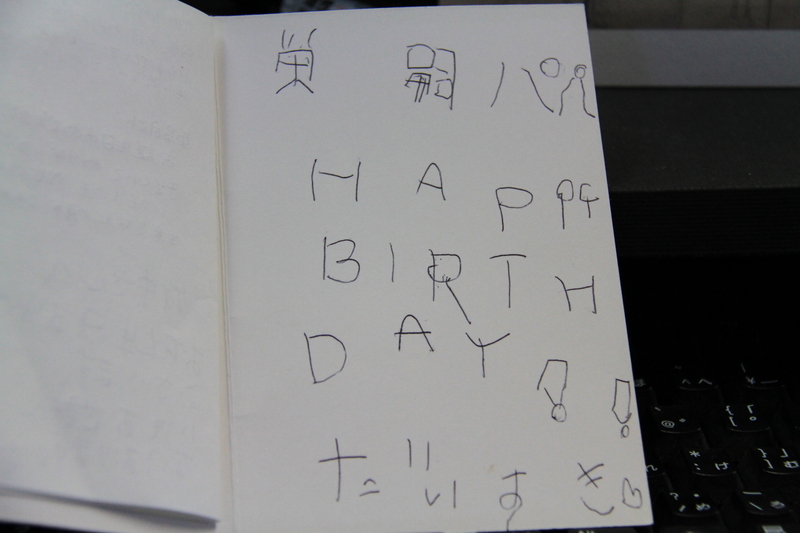 栄嗣パパ
HAPPY
BIRTH
DAY!!
だいすき